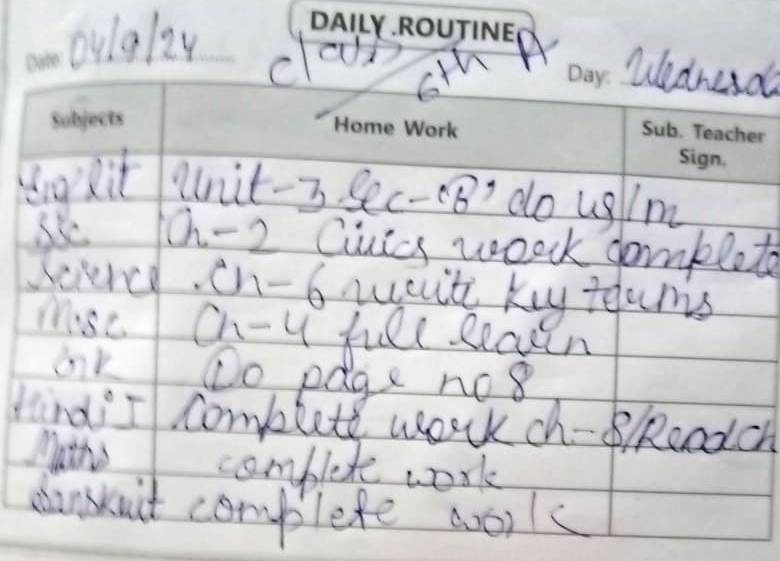 DAILY.ROUTINE
Date: 04/9/24
Class 6th A
Day: Wednesda
Subjects Home Work Sub. Teacher Sign.
Eng lit Unit-3 Sec-"B" do w/m
SSc Ch-2 Civics work complete
Science Ch-6 write key terms
M.sc Ch-4 full learn
GK Do page no 8
Hindi I complete work ch-8/Read ch
Maths complete work
Sanskrit complete work